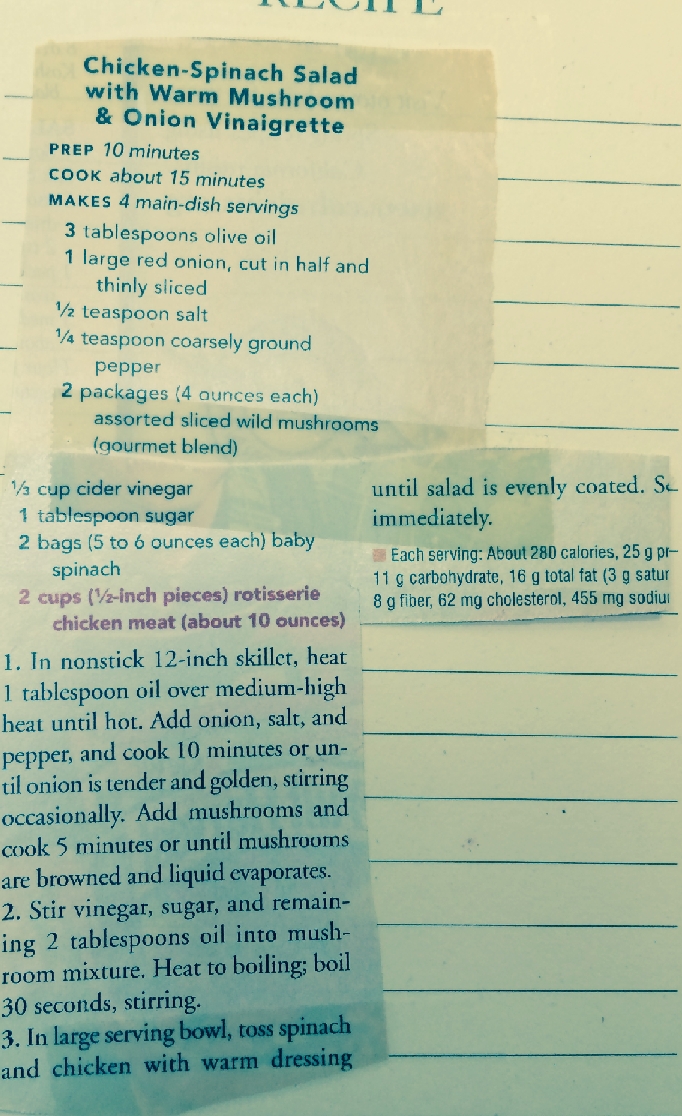 RECIPE
Chicken-Spinach Salad
with Warm Mushroom
& Onion Vinaigrette
PREP 10 minutes
COOK about 15 minutes
MAKES 4 main-dish servings
3 tablespoons olive oil
1 large red onion, cut in half and
thinly sliced
½ teaspoon salt
¼ teaspoon coarsely ground
pepper
2 packages (4 ounces each)
assorted sliced wild mushrooms
(gourmet blend)
⅓ cup cider vinegar
1 tablespoon sugar
2 bags (5 to 6 ounces each) baby
spinach
2 cups (½-inch pieces) rotisserie
chicken meat (about 10 ounces)
1. In nonstick 12-inch skillet, heat
1 tablespoon oil over medium-high
heat until hot. Add onion, salt, and
pepper, and cook 10 minutes or un-
til onion is tender and golden, stirring
occasionally. Add mushrooms and
cook 5 minutes or until mushrooms
are browned and liquid evaporates.
2. Stir vinegar, sugar, and remain-
ing 2 tablespoons oil into mush-
room mixture. Heat to boiling; boil
30 seconds, stirring.
3. In large serving bowl, toss spinach
and chicken with warm dressing
until salad is evenly coated.
immediately.
Each serving: About 280 calories, 25 g
11 g carbohydrate, 16 g total fat (3 g
8 g fiber, 62 mg cholesterol, 455 mg